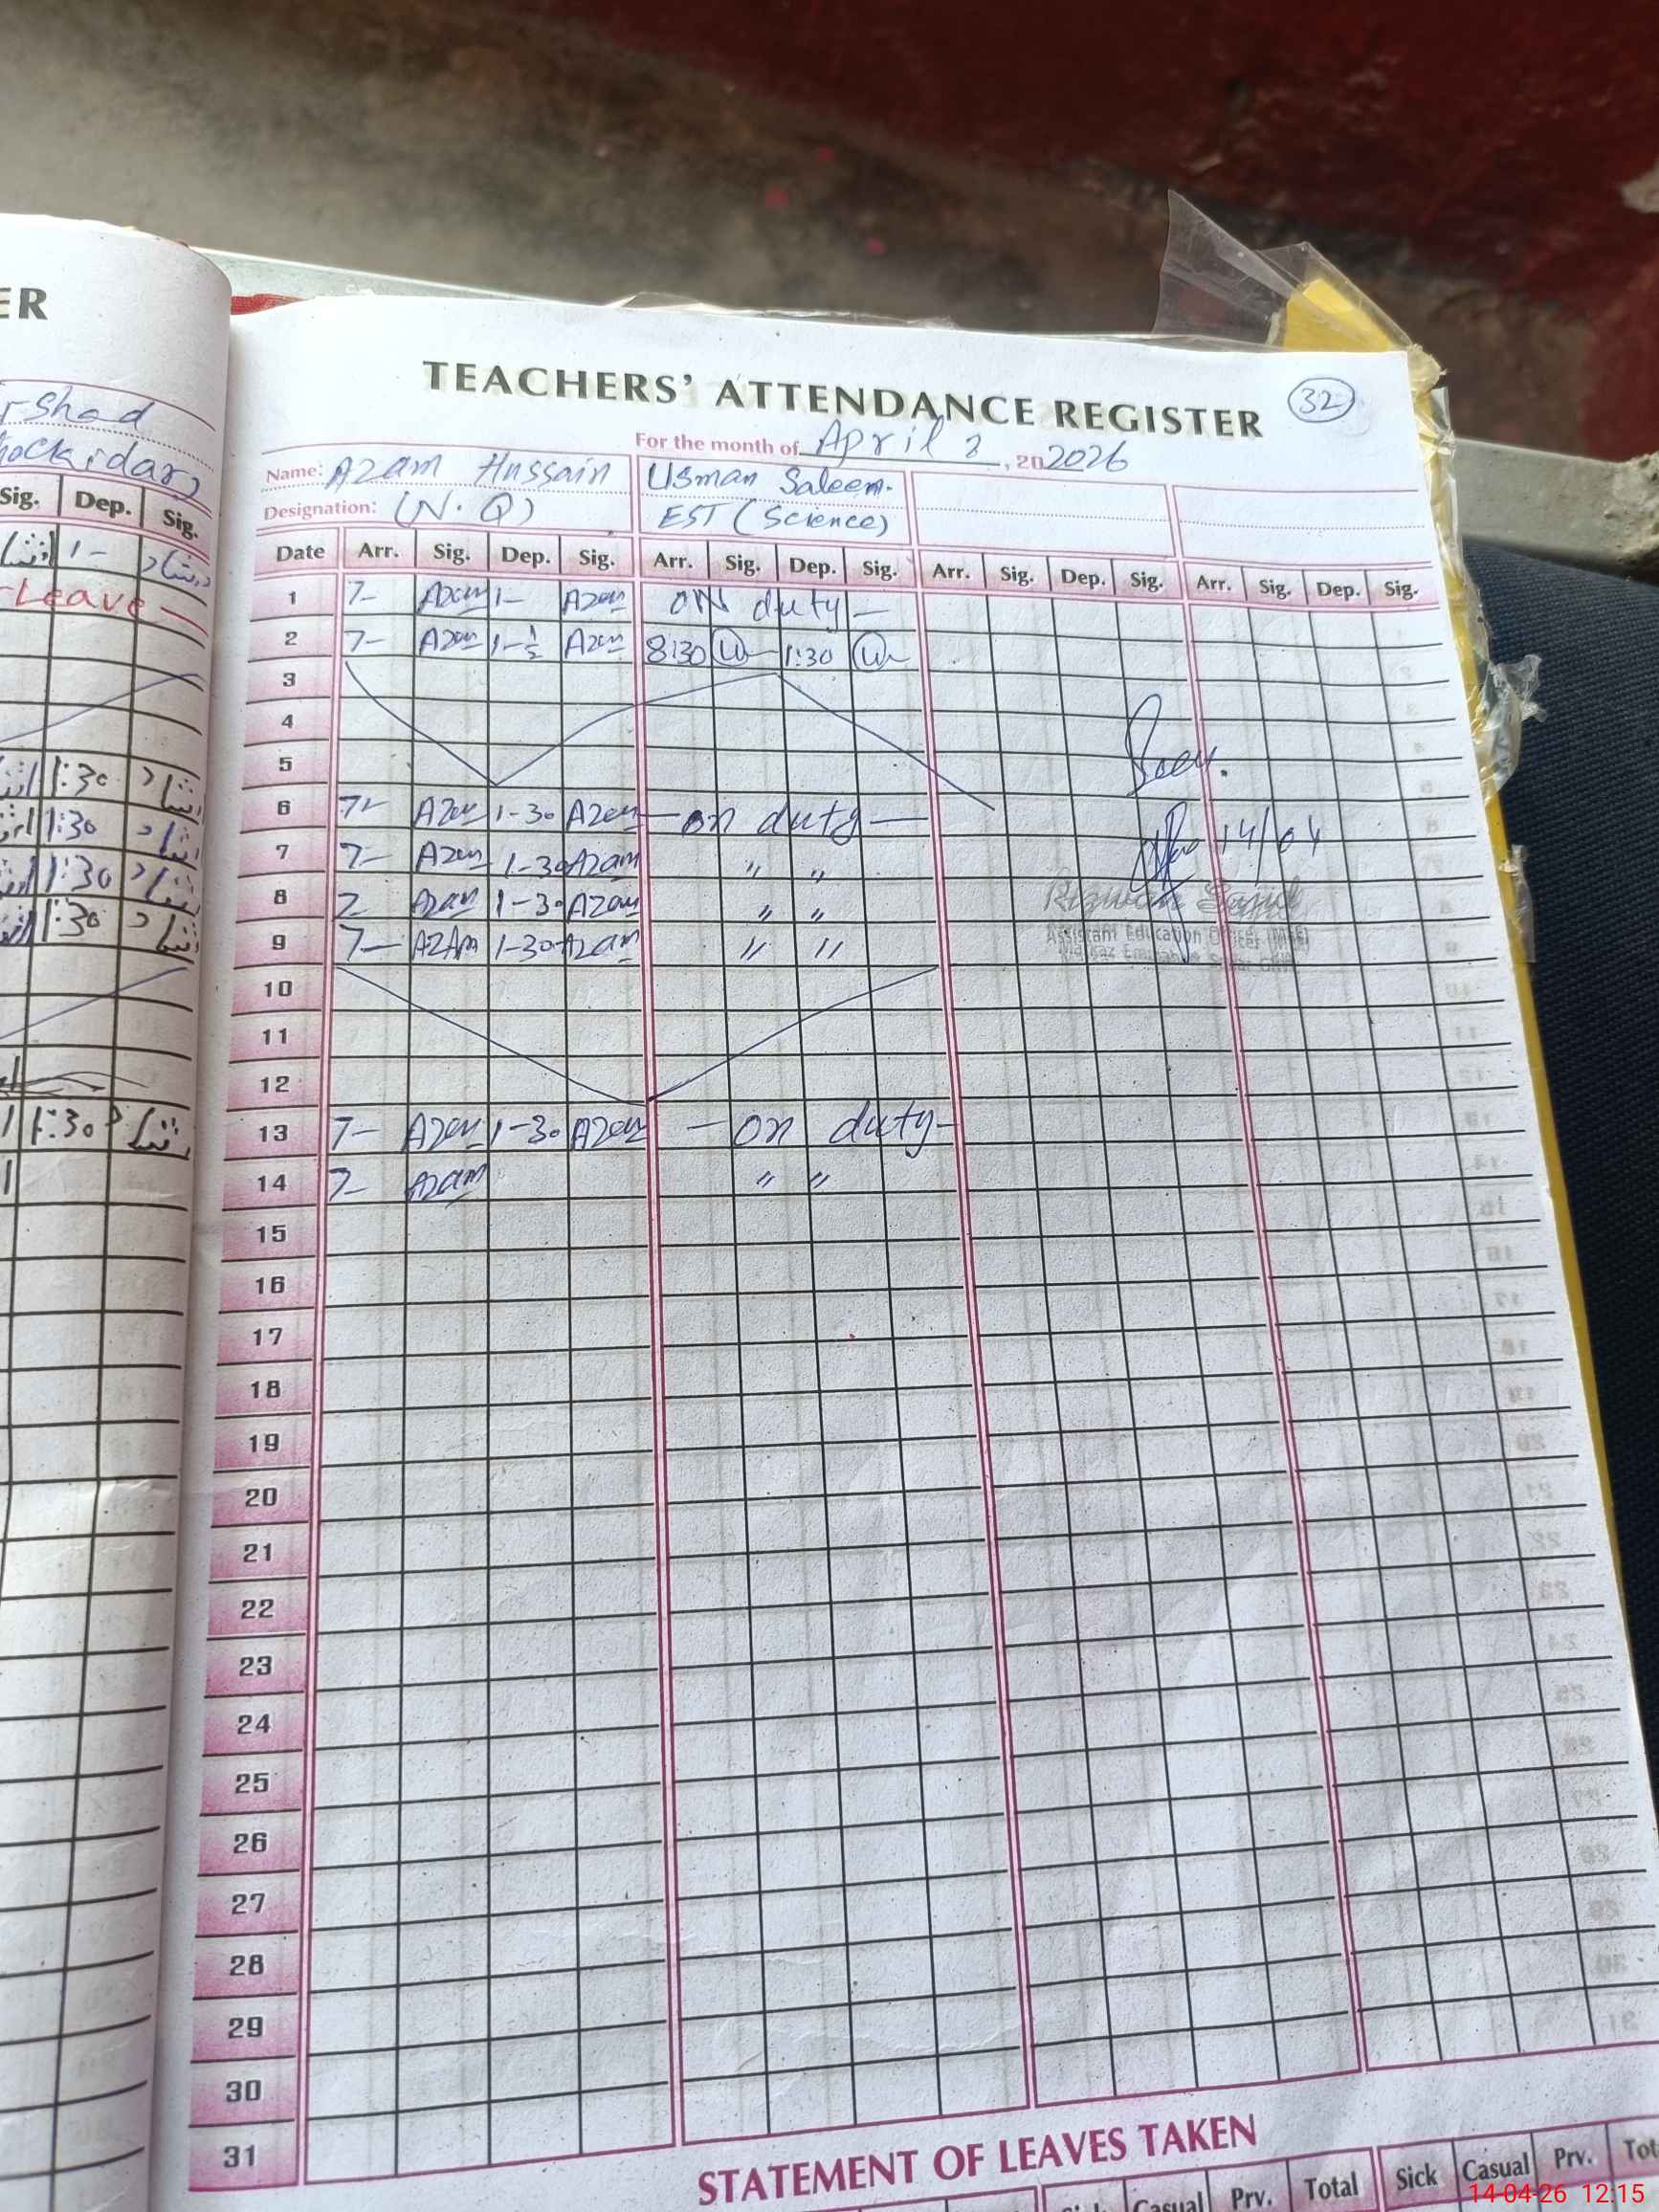 ER
shad
Sig. Dep. Sig.
1-
Leave
1:30
1:30
1:30
1:30
1:30
TEACHERS' ATTENDANCE REGISTER 32
For the month of April 2026
Name: Azam Hussain Usman Saleem.
Designation: (N.Q) EST (Science)
Date Arr. Sig. Dep. Sig. Arr. Sig. Dep. Sig. Arr. Sig. Dep. Sig. Arr. Sig. Dep. Sig.
1 7- Azam 1- Azam ON duty
2 7- Azam 1-½ Azam 8:30 1:30
3
4
5
6 7- Azam 1-30 Azam on duty
7 7- Azam 1-30 Azam " "
8 7- Azam 1-30 Azam " "
9 7- AZAm 1-30 Azam " "
14/04
Rizwan Sajid
Assistant Education Officer
10
11
12
13 7- Azam 1-30 Azam on duty
14 7- Azam " "
15
16
17
18
19
20
21
22
23
24
25
26
27
28
29
30
31
STATEMENT OF LEAVES TAKEN
Casual Prv. Total Sick Casual Prv.
14-04-26 12:15